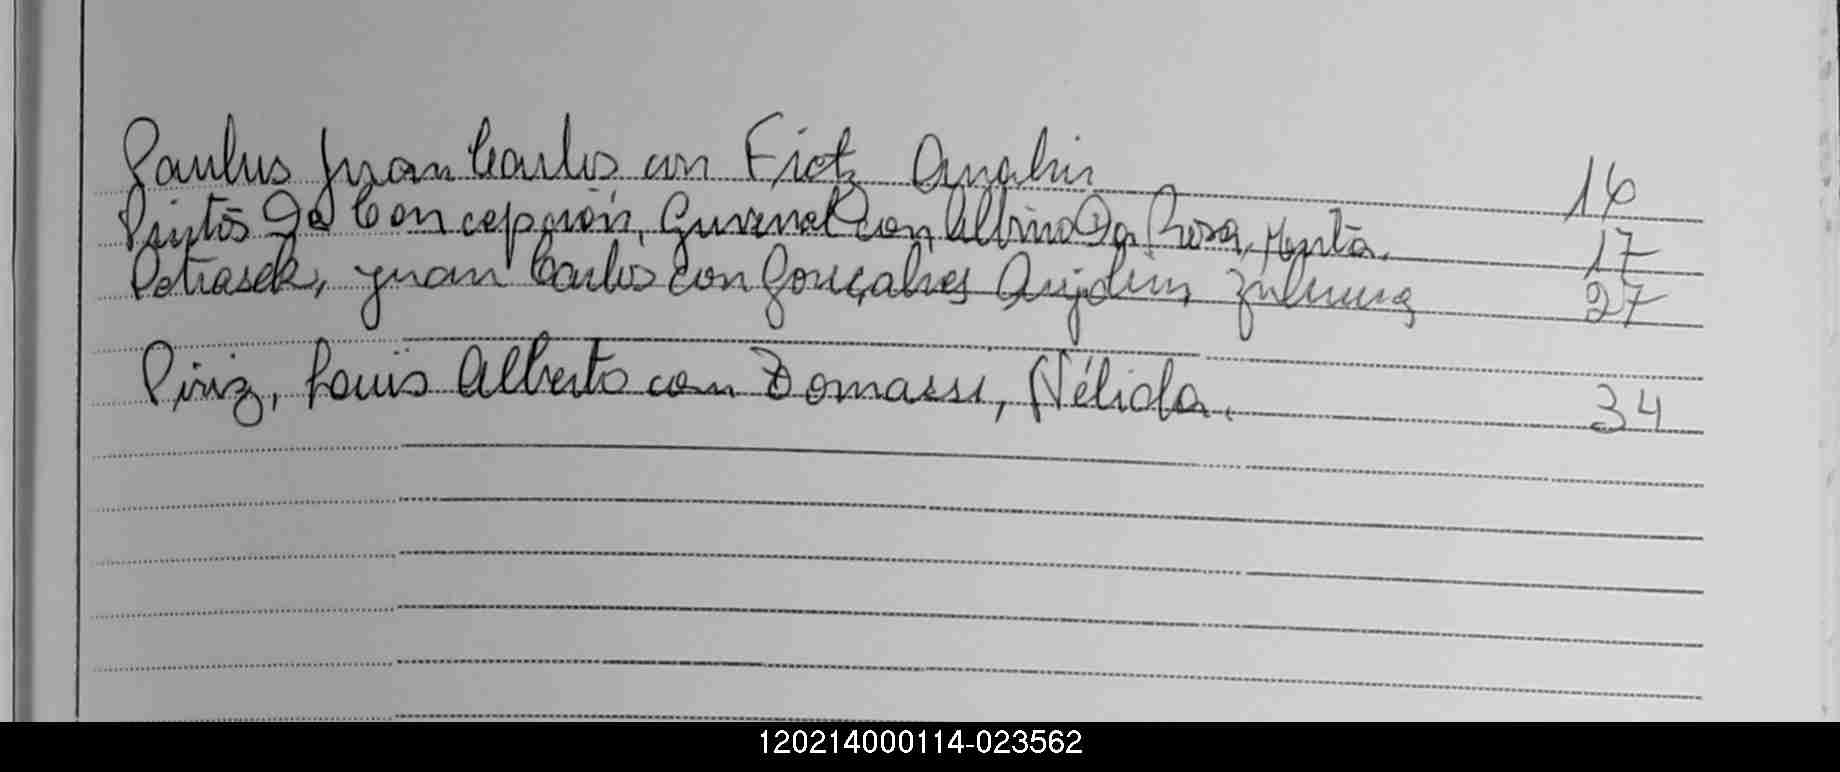 Paulus Juan Carlos con Fietz Analia 16
Pintos De Concepcion, con Albino Da Rosa, 17
Petrasek, Juan Carlos con Gonçalves Zulema 27
Piriz, Luis Alberto con Domassi, Nélida. 34
120214000114-023562